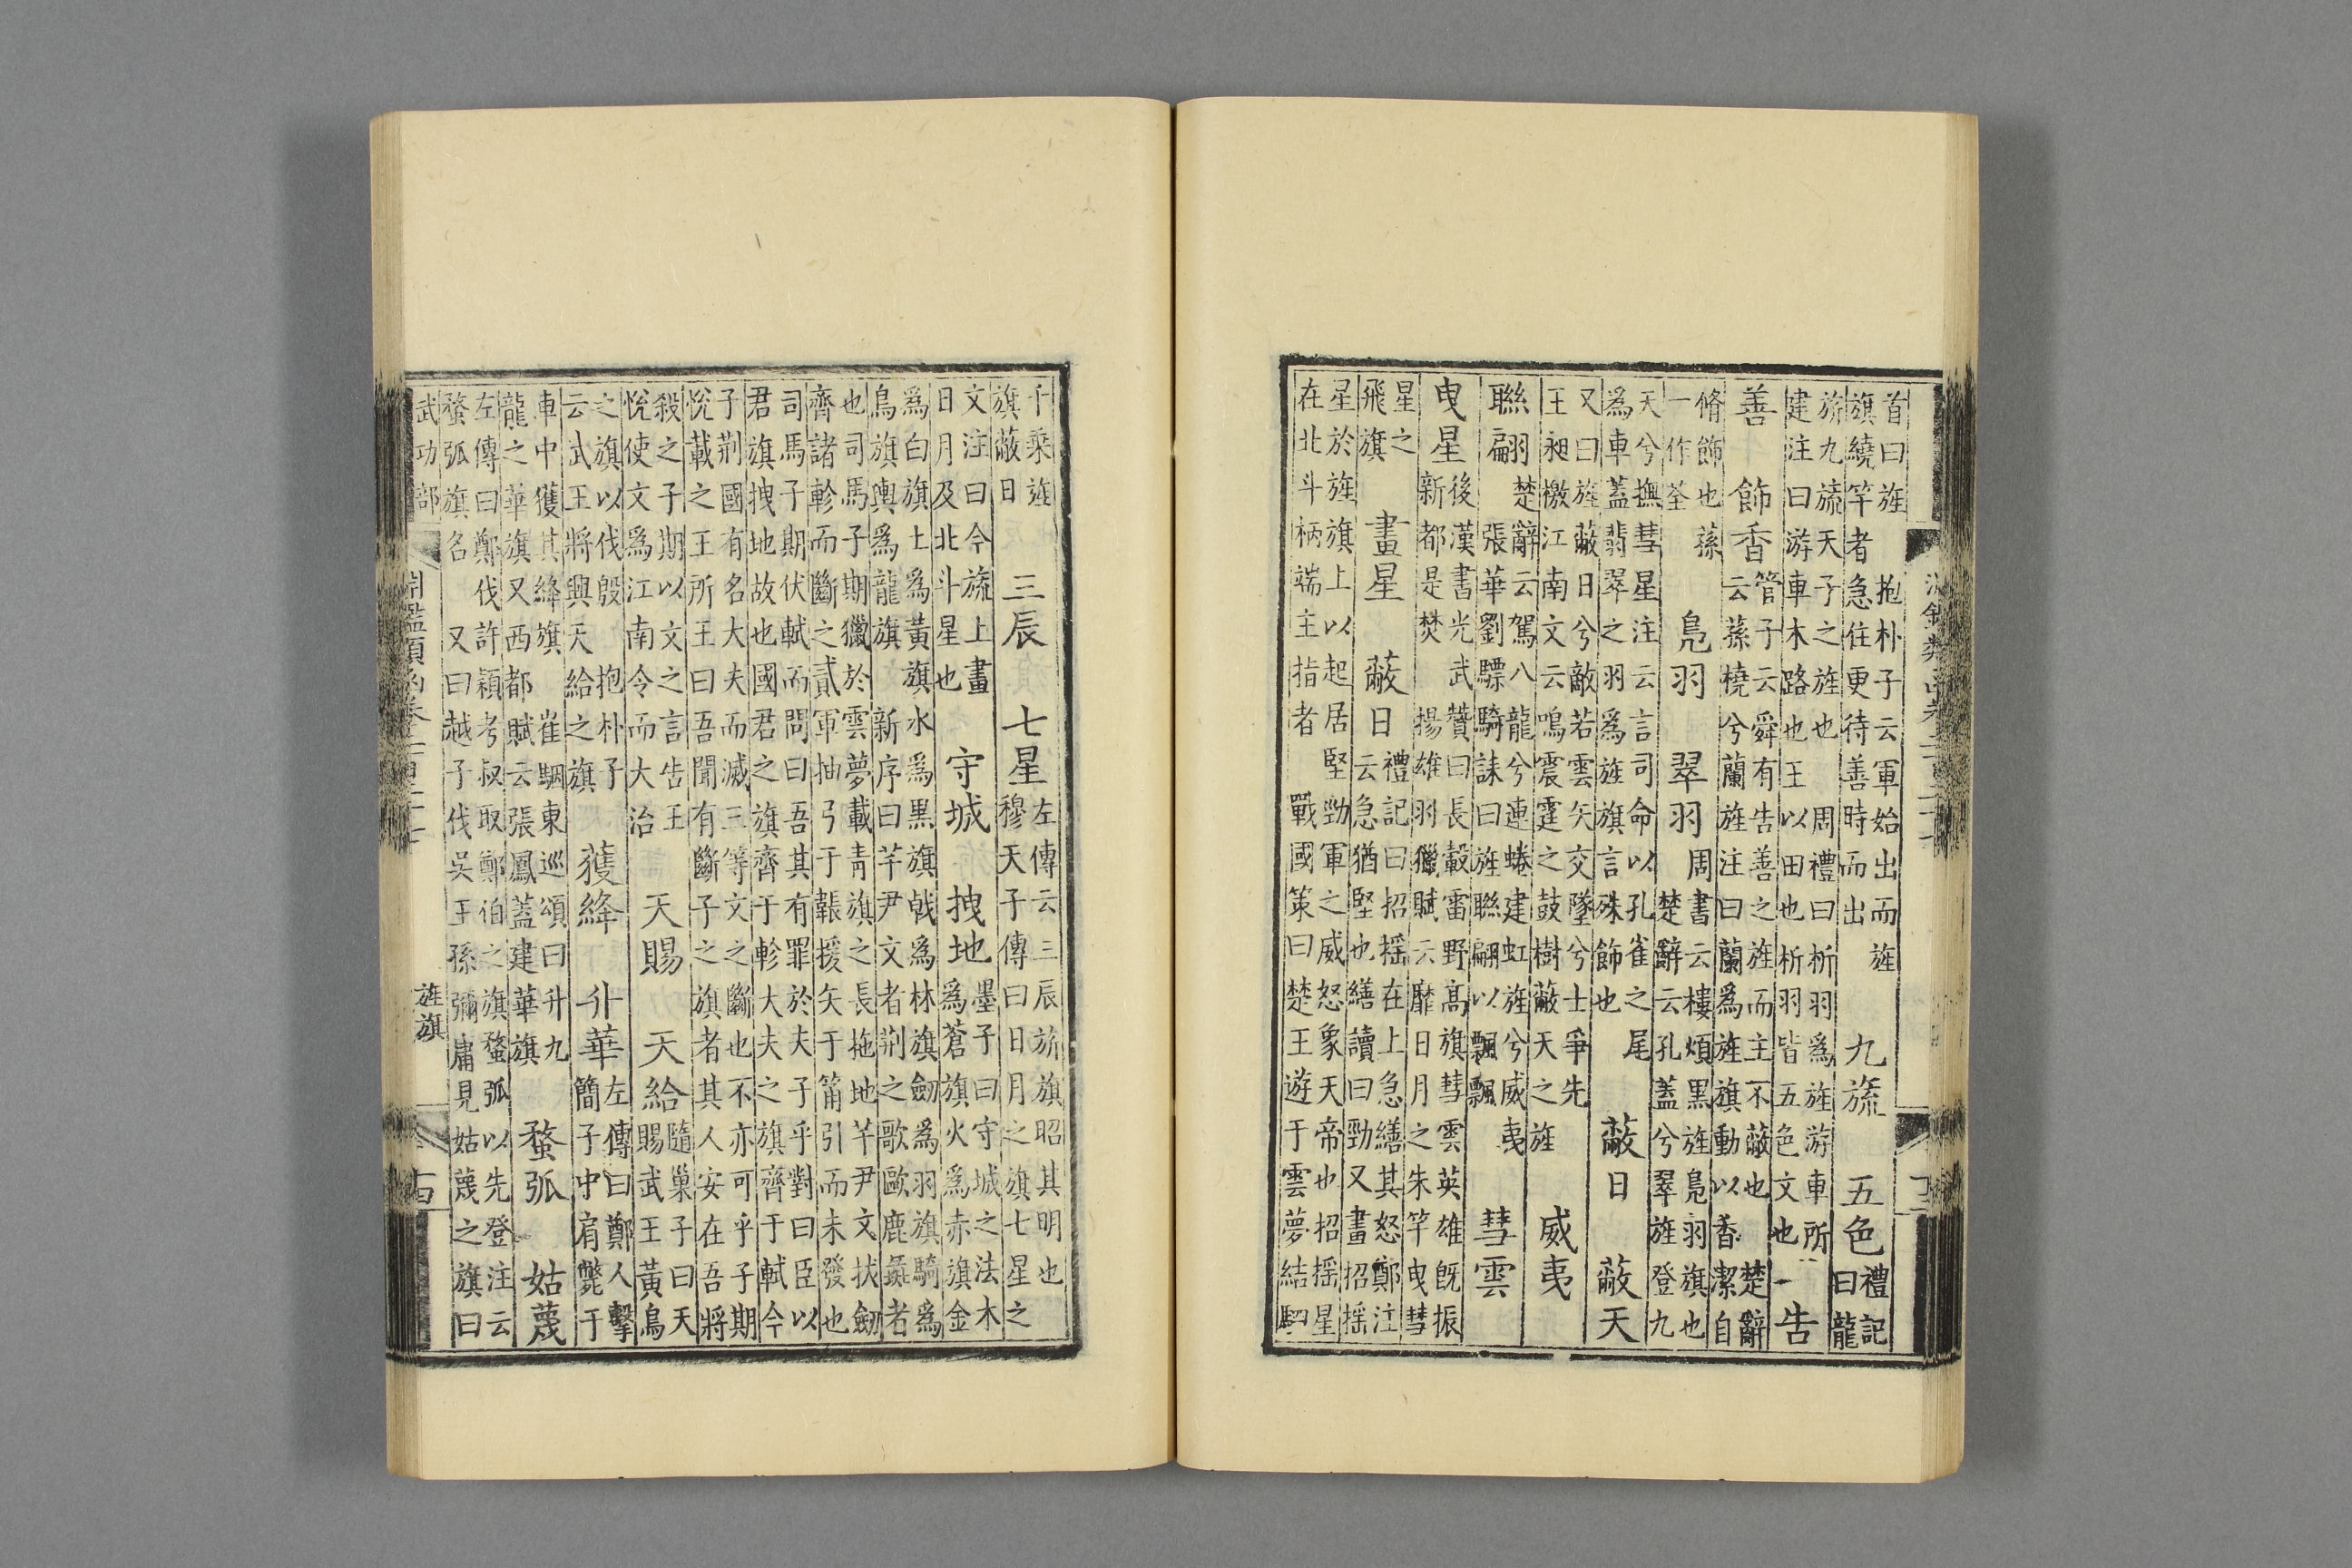 首曰旌　抱朴子云軍始出而旌
旗繞竿者急住更待善時而出出
九旒　五色
禮記
曰龍
旂九旒天子之旌也　周禮曰析羽爲旌游車所
建注曰游車木路也王以田也析羽皆五色文也
一告
善　飾香
管子云舜有告善之旌而主不蔽也　楚辭
云蓀橈兮蘭旌注曰蘭爲旌旗動以香潔自
脩飾也蓀
一作荃
鳧羽　翠羽
周書云樓煩黑旌鳧羽旗也
楚辭云孔蓋兮翠旌登九
天兮撫彗星注云言司命以孔雀之尾
爲車蓋翡翠之羽爲旌旗言殊飾也
蔽日　蔽天
又曰旌蔽日兮敵若雲矢交墜兮士爭先
王昶檄江南文云鳴震霆之鼓樹蔽天之旌
威夷
聯翩
楚辭云駕八龍兮連蜷建虹旌兮威夷
張華劉驃騎誄曰旌聯翩以飄飄
彗雲
曳星
後漢書光武贊曰長轂雷野高旗彗雲英雄旣振
新都是焚　揚雄羽獵賦云靡日月之朱竿曳彗
星之
飛旗
畫星　蔽日
禮記曰招摇在上急繕其怒鄭注
云急猶堅也繕讀曰勁又畫招摇
星於旌旗上以起居堅勁軍之威怒象天帝也招摇星
在北斗柄端主指者　戰國策曰楚王遊于雲夢結駟
千乘旌
旗蔽日
三辰　七星
左傳云三辰旂旗昭其明也
穆天子傳曰日月之旗七星之
文注曰今旒上畫
日月及北斗星也
守城　拽地
墨子曰守城之法木
爲蒼旗火爲赤旗金
爲白旗土爲黃旗水爲黑旗戟爲林旗劒爲羽旗騎爲
鳥旗輿爲龍旗　新序曰芊尹文者荆之歌歐鹿彘者
也司馬子期獵於雲夢載靑旗之長拖地芊尹文扶劒
齊諸軫而斷之貳軍抽弓于韔援矢于筩引而未發也
司馬子期伏軾而問曰吾其有罪於夫子乎對曰臣以
君旗拽地故也國君之旗齊于軫大夫之旗齊于軾今
子荆國有名大夫而滅三等文之斷也不亦可乎子期
悅載之王所王曰吾聞有斷子之旗者其人安在吾將
殺之子期以文之言告王
悅使文爲江南令而大治
天賜　天給
隨巢子曰天
賜武王黃鳥
之旗以伐殷　抱朴子
云武王將興天給之旗
獲絳　升華
左傳曰鄭人擊
簡子中肩斃于
車中獲其絳旗　崔駰東巡頌曰升九
龍之華旗又西都賦云張鳳蓋建華旗
蝥弧　姑蔑
左傳曰鄭伐許穎考叔取鄭伯之旗蝥弧以先登注云
蝥弧旗名　又曰越子伐吳王孫彌庸見姑蔑之旗曰
武功部
旌旗